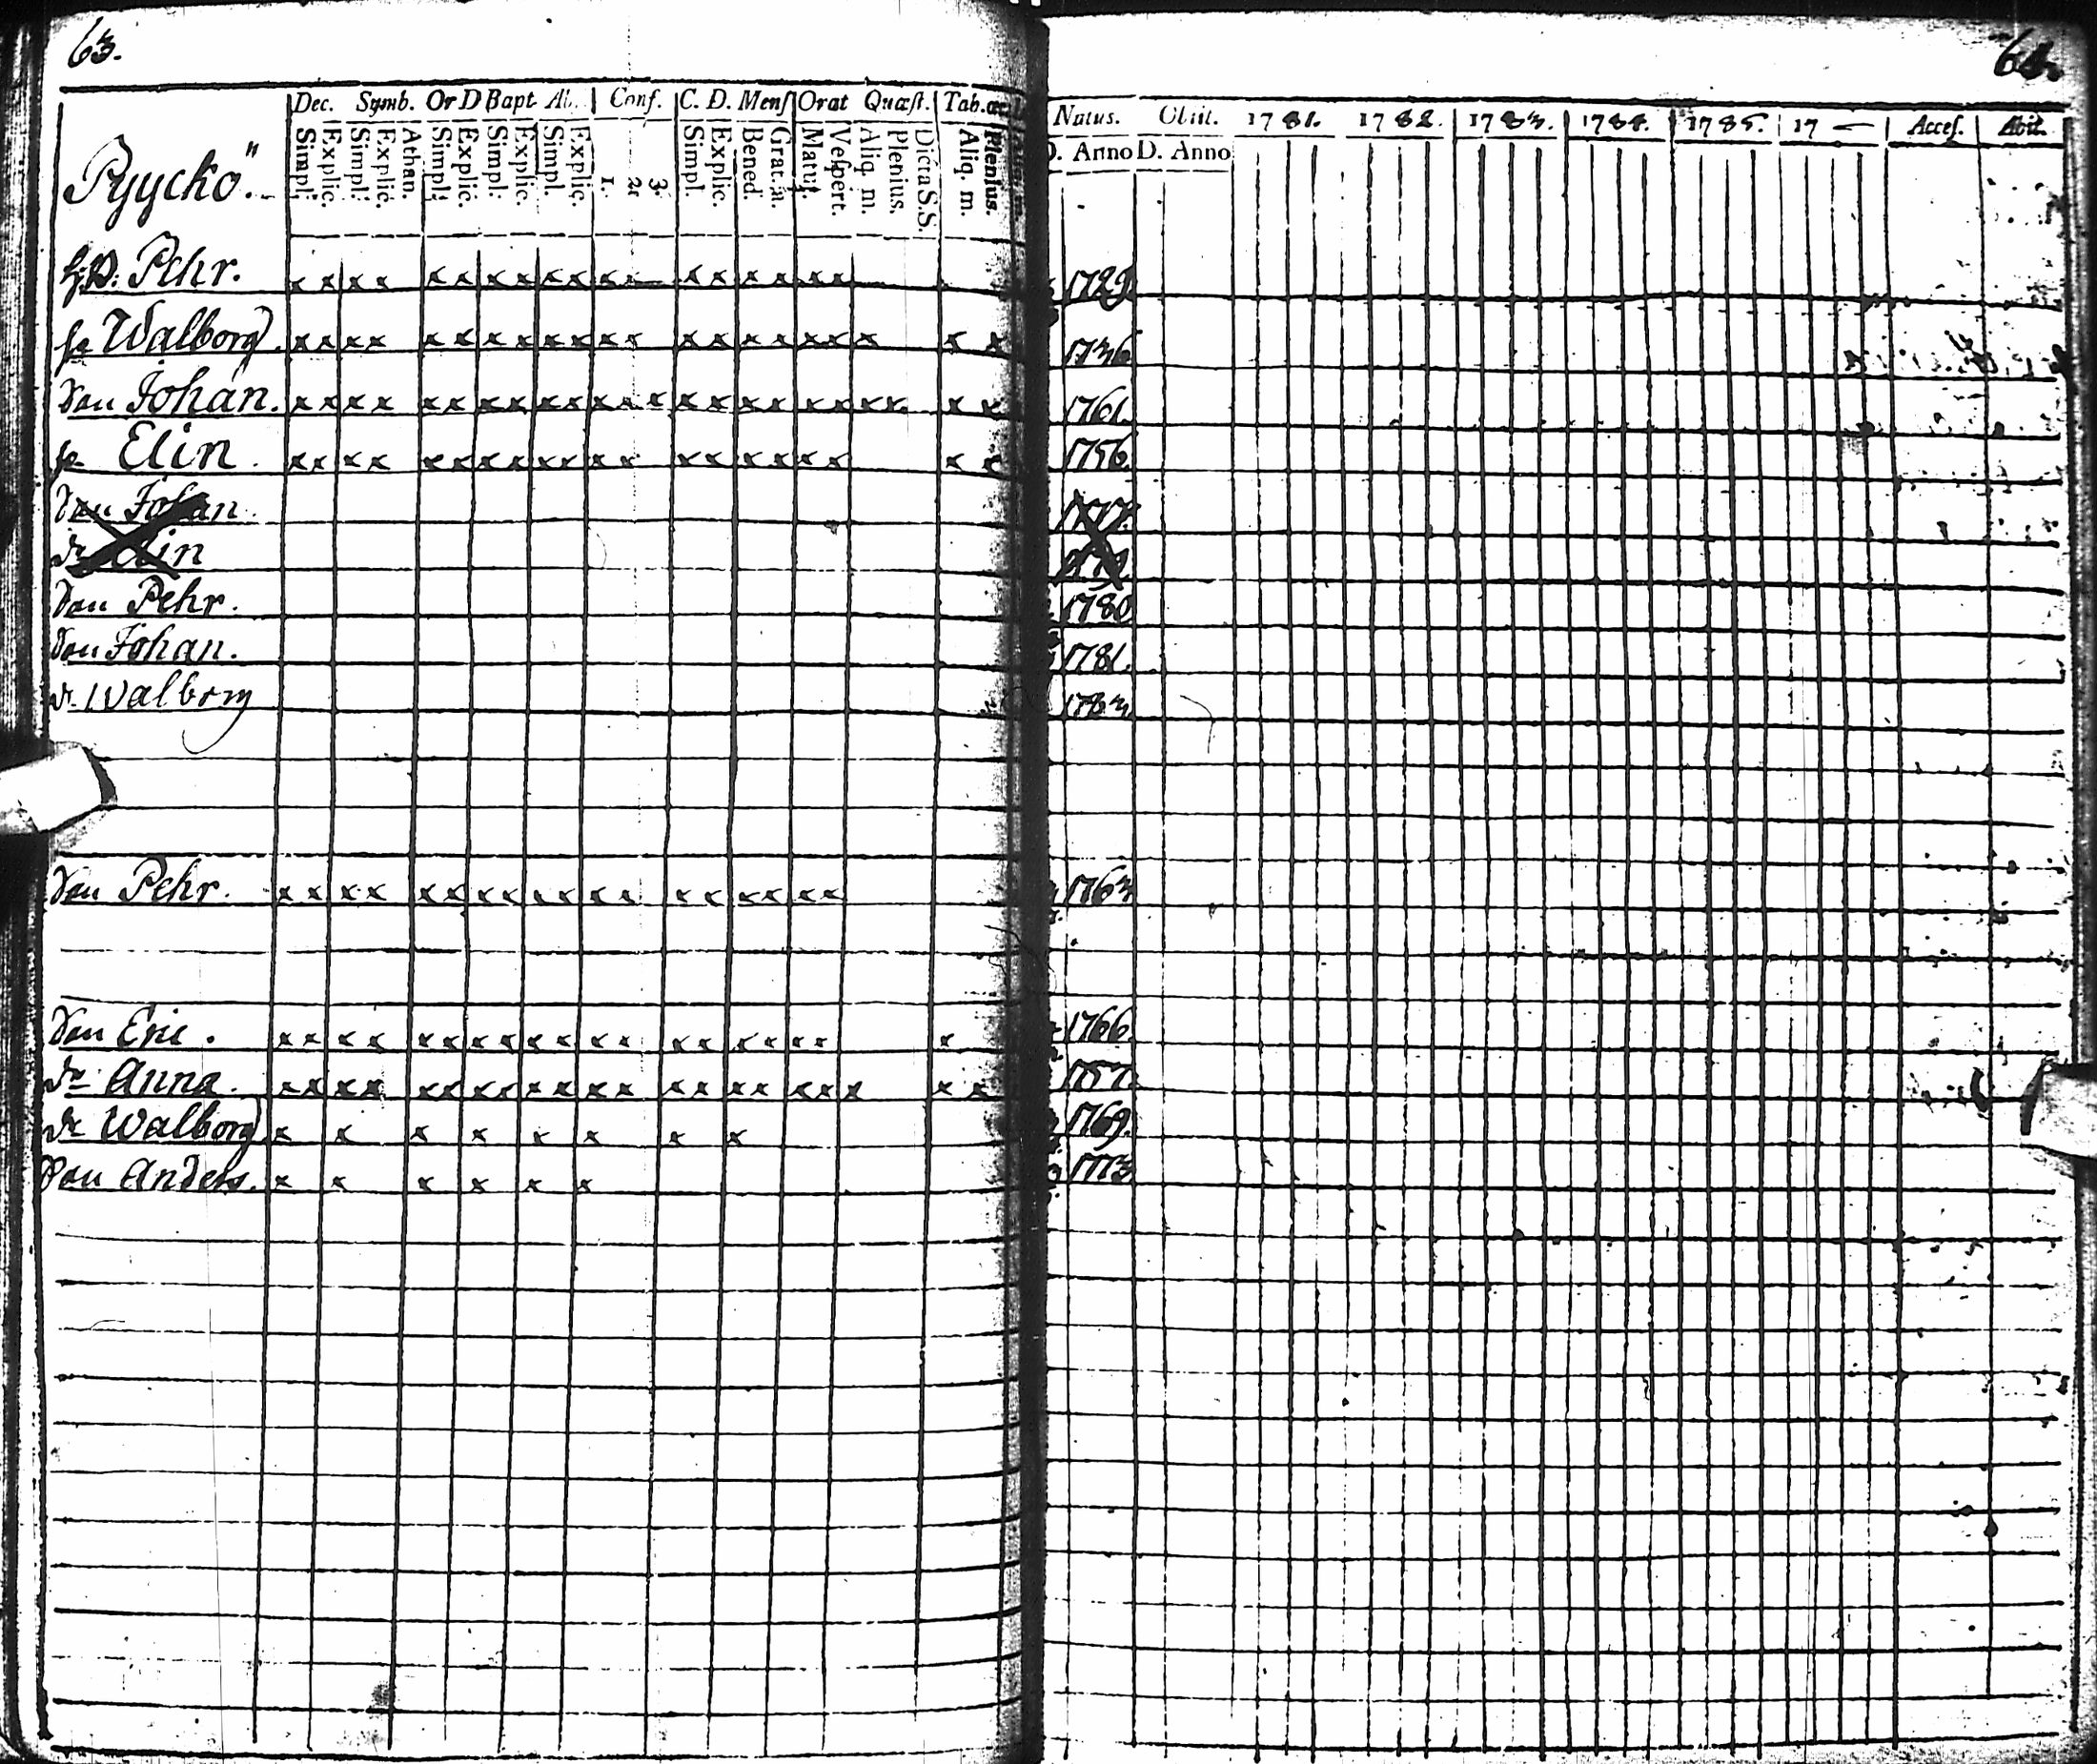 63.
64.
Dec. Symb. Or D Bapt Ab. Conf. C. D. Mens Orat Quæst. Tab. œc
Simpl. Explic. Simpl. Explic. Athan. Simpl. Explic. Simpl. Explic. Simpl. Explic. 1. 2. 3. Simpl. Explic. Bened. Grat. a. Matut. Vespert. Aliq. m. Plenius. Dicta S.S. Aliq. m. Plenius.
Natus. Obiit. 1781. 1782. 1783. 1784. 1785. 17 — Acces. Abit.
D. Anno D. Anno
Pyyckö.
Pehr. x x x x x x x x x x x x x x x x x x 1729
hu Walborg x x x x x x x x x x x x x x x x x x x x x 1736
Son Johan. x x x x x x x x x x x x x x x x x x x x x x x 1761.
hu Elin x x x x x x x x x x x x x x x x x x x x 1756.
Son Johan
dr Elin
Son Pehr. 1780
Son Johan. 1781.
dr Walborg 1783
Son Pehr. x x x x x x x x x x x x x x x x x x 1763
Son Eric. x x x x x x x x x x x x x x x x x x x 1766.
dr Anna. x x x x x x x x x x x x x x x x x x x x x 1757.
dr Walborg x x x x x x x x 1769.
Son Anders. x x x x x x 1773